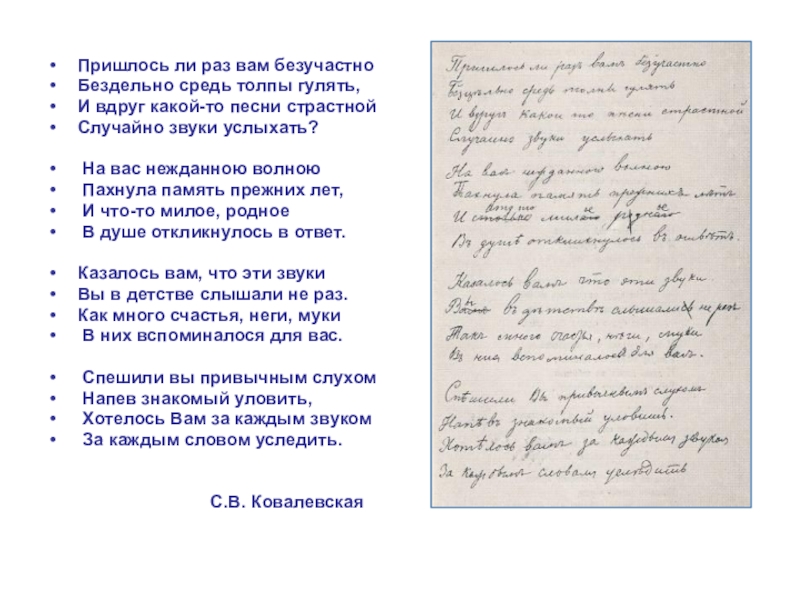 Пришлось ли раз вам безучастно
Бездельно средь толпы гулять,
И вдруг какой-то песни страстной
Случайно звуки услыхать?
На вас нежданною волною
Пахнула память прежних лет,
И что-то милое, родное
В душе откликнулось в ответ.
Казалось вам, что эти звуки
Вы в детстве слышали не раз.
Как много счастья, неги, муки
В них вспоминалося для вас.
Спешили вы привычным слухом
Напев знакомый уловить,
Хотелось Вам за каждым звуком
За каждым словом уследить.
С.В. Ковалевская
Пришлось ли разъ вамъ безучастно
Безцѣльно средь толпы гулять
И вдругъ какой то пѣсни страстной
Случайно звуки услыхать
На васъ нежданною волною
Пахнула память прежнихъ лѣтъ
И что то милое родное
Въ душѣ откликнулось въ отвѣтъ.
Казалось вамъ что эти звуки
Вы въ дѣтствѣ слышали не разъ
Такъ много счастья, нѣги, муки
Въ нихъ вспоминалось для васъ.
Спѣшили Вы привычнымъ слухомъ
Напѣвъ знакомый уловить.
Хотѣлось вамъ за каждымъ звукомъ
За каждымъ словомъ услѣдить